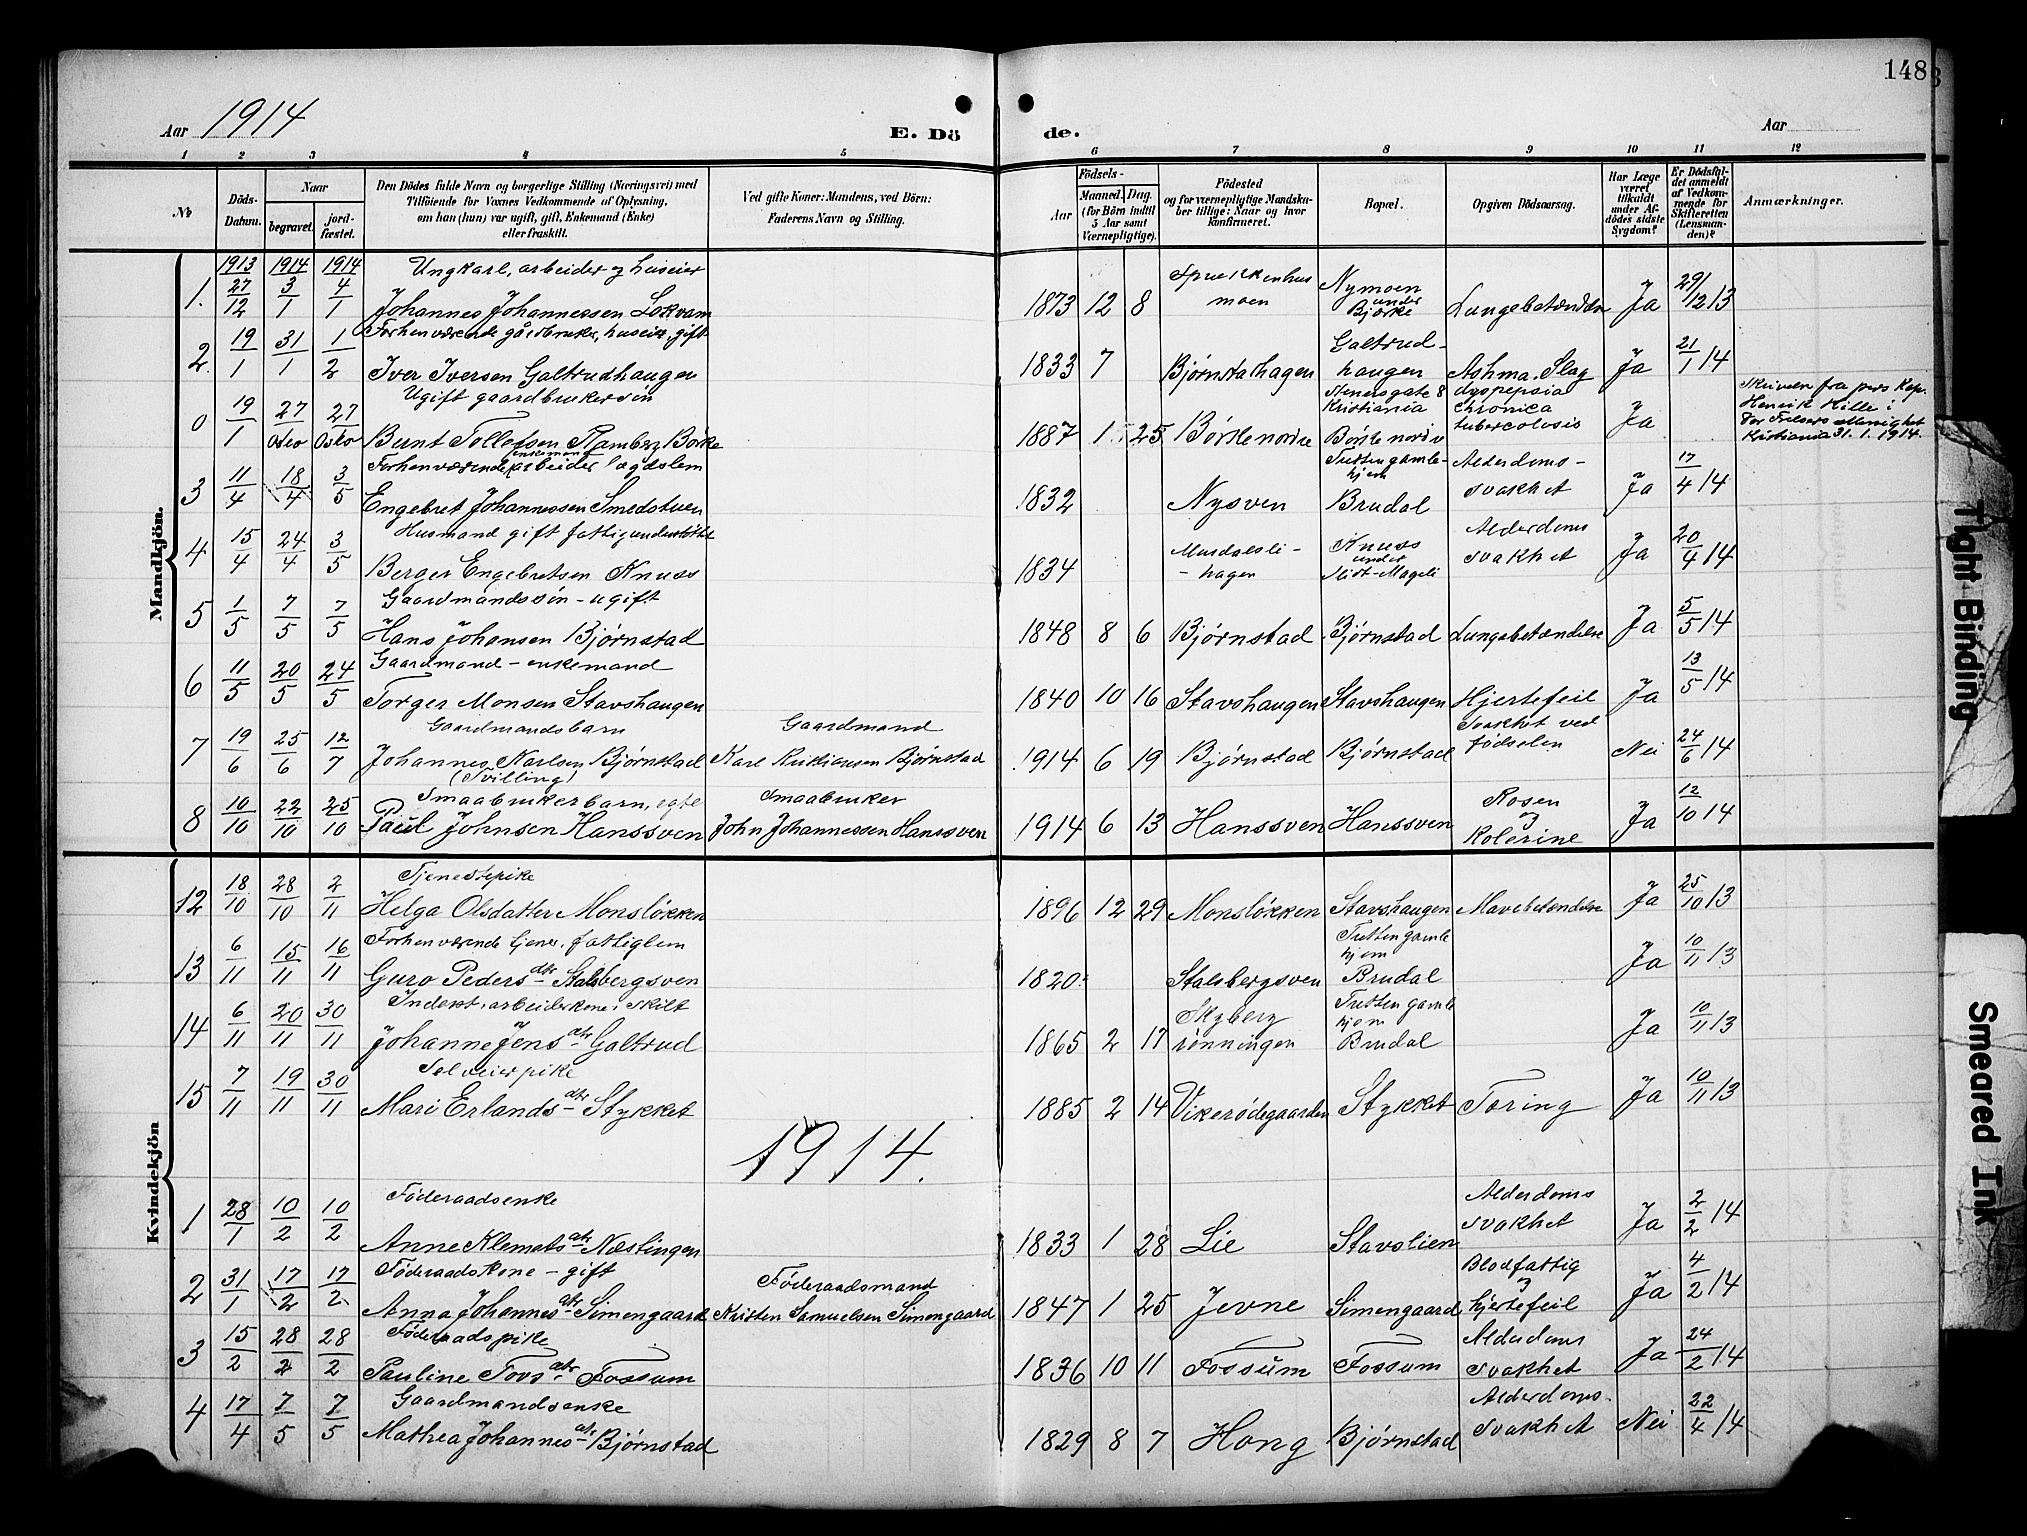 148
Aar 1914
E. Dö de.
Aar
1 2 3 4 5 6 7 8 9 10 11 12
No
Döds-Datum.
Naar
begravet.
jord-fæstet.
Den Dödes fulde Navn og borgerlige Stilling (Næringsvei) med
Tilföiende for Voxnes Vedkommende af Oplysning,
om han (hun) var ugift, gift, Enkemand (Enke)
eller fraskilt.
Ved gifte Koner: Mandens, ved Börn:
Faderens Navn og Stilling.
Födsels-
Aar
Maaned. Dag.
(for Börn indtil
5 Aar samt
Værnepligtige).
Födested
og for værnepligtige Mandska-
ber tillige: Naar og hvor
konfirmeret.
Bopæl.
Opgiven Dödsaarsag.
Har Læge
været
tilkaldt
under Af-
dödes sidste
Sygdom?
Er Dödsfal-
det anmeldt
af Vedkom-
mende for
Skifteretten
(Lensman-
den)?
Anmærkninger.
Mandkjön.
1913 1914 1914 Ungkarl, arbeider og huseier
1. 27/12 3/1 4/1 Johannes Johannessen Lökvam 1873 12 8 moen Nymoen under Bjørke Lungebetændelse Ja 29/12 13
Forhenværende gårdbruker, huseier, gift
2. 19/1 31/1 1/2 Iver Iversen Galtrudhaugen 1833 7 Bjørnstahagen Galtrud-haugen Asthma. Slag Ja 21/1 14
Ugift gaardbrukersön
0 19/1 27 Oslo 27 Oslo Bernt Tollefsen Ramberg Børke 1887 1 25 Børste nordre Stenersgate 8 Kristiania Børste nordre dyspepsia chronica tubercolosis Ja
Skrivelse fra pers. kap.
Henrik Hille i
Vor Frelsers Menighet
Kristiania 31.1.1914.
Forhenværende arbeider lægdslem
enkemand
3 11/4 18/4 3/5 Engebret Johannessen Smedstuen 1832 Nysven Trettengamle-hjem Brudal Alderdoms-svakhet Ja 17/4 14
Husmand gift fattigunderstöttet
4 15/4 24/4 3/5 Berger Engebretsen Knuss 1834 Musdalsli-hagen Knuss under Midt-Mageli Alderdoms svakhet Ja 20/4 14
Gaardmandssön - ugift
5 1/5 7/5 7/5 Hans Johansen Bjørnstad 1848 8 6 Bjørnstad Bjørnstad Lungebetændelse Ja 5/5 14
Gaardmand - enkemand
6 11/5 20/5 24/5 Torger Monsen Stavshaugen 1840 10 16 Stavshaugen Stavshaugen Hjertefeil Ja 13/5 14
Gaardmandsbarn Gaardmand
7 19/6 25/6 12/7 Johannes Karlsen Bjørnstad Karl Kristiansen Bjørnstad 1914 6 19 Bjørnstad Bjørnstad Svakhet ved fødselen Nei 24/6 14
(Tvilling)
Smaabrukerbarn, egte Smaabruker
8 10/10 22/10 25/10 Paul Johnsen Hanssven John Johannessen Hanssven 1914 6 13 Hanssven Hanssven Rosen og Kolerine Ja 12/10 14
Kvindekjön
Tjenestepike
12 18/10 28/10 2/11 Helga Olsdatter Monsløkken 1896 12 29 Monsløkken Stavshaugen Mavebetændelse Ja 25/10 13
Forhenværende tjener, fattiglem
13 6/11 15/11 16/11 Guro Peders dtr Stalsbergsven 1820 Stalsbergsven Tretten gamle hjem Brudal Ja 10/11 13
Inderst, arbeiderkone, skilt
14 6/11 20/11 30/11 Johanne Jens dtr Galtrud 1865 2 17 Skyberg rönningen Tretten gamle hjem Brudal Ja 10/11 13
Selveierpike
15 7/11 19/11 30/11 Mari Erlands dtr Stykket 1885 2 14 Vikerødegaarden Stykket Tæring Ja 10/11 13
1914.
Föderaadsenke
1 28/1 10/2 10/2 Anne Klemets dtr Næstingen 1833 1 28 Lie Stavslien Alderdoms svakhet Ja 2/2 14
Föderaadskone - gift Föderaadsmand
2 31/1 17/2 17/2 Anna Johannes dtr Simengaard Kristen Samuelsen Simengaard 1847 1 25 Jevne Simengaard Blodfattig og hjertefeil Ja 4/2 14
Föderaadspike
3 15/2 28/2 28/2 Pauline Tovs dtr Fossum 1836 10 11 Fossum Fossum Alderdoms svakhet Ja 24/2 14
Gaardmandsenke
4 17/4 7/5 7/5 Mathea Johannes dtr Bjørnstad 1829 8 7 Hong Bjørnstad Alderdoms-svakhet Nei 22/4 14
Tight Binding
Smeared Ink